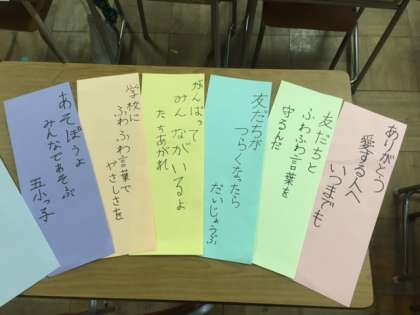 ありがとう
愛する人へ
いつまでも
友だちと
ふわふわ言葉を
守るんだ
友だちが
つらくなったら
だいじょうぶ
がんばって
みんながいるよ
たちあがれ
学校に
ふわふわ言葉で
やさしさを
あそぼうよ
みんなであそぶ
五小っ子